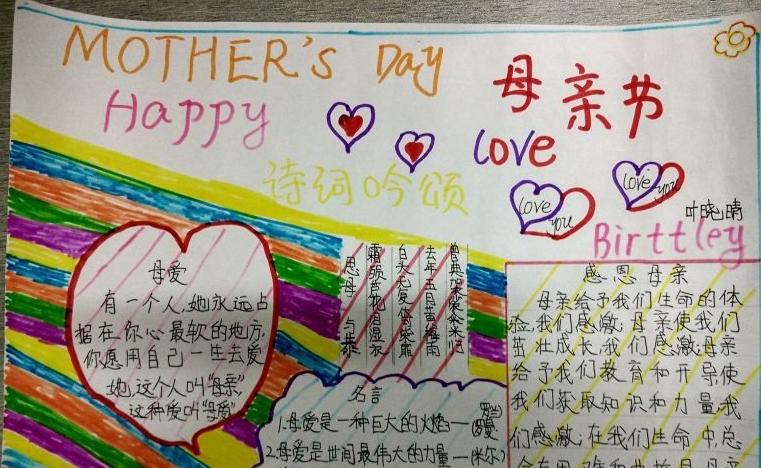 MOTHER'S Day
母亲节
Happy
love
诗词吟颂
love you
love you
叶晓晴
Birttley
母爱
有一个人,她永远占
据在你心最软的地方,
你愿用自己一生去爱
她,这个人叫“母亲”
这种爱叫“母爱”
思母 与恭
霜殒芦花泪湿衣
白头无复倚柴扉
去年五月黄梅雨
曾典袈裟籴米归
名言
1.母爱是一种巨大的火焰——罗曼
2.母爱是世间最伟大的力量——(米尔)
感恩母亲
母亲给予我们生命的体
验,我们感激;母亲使我们
茁壮成长,我们感激;母亲
给予我们教育和开导使
我们获取知识和力量,我
们感激;在我们生命中总